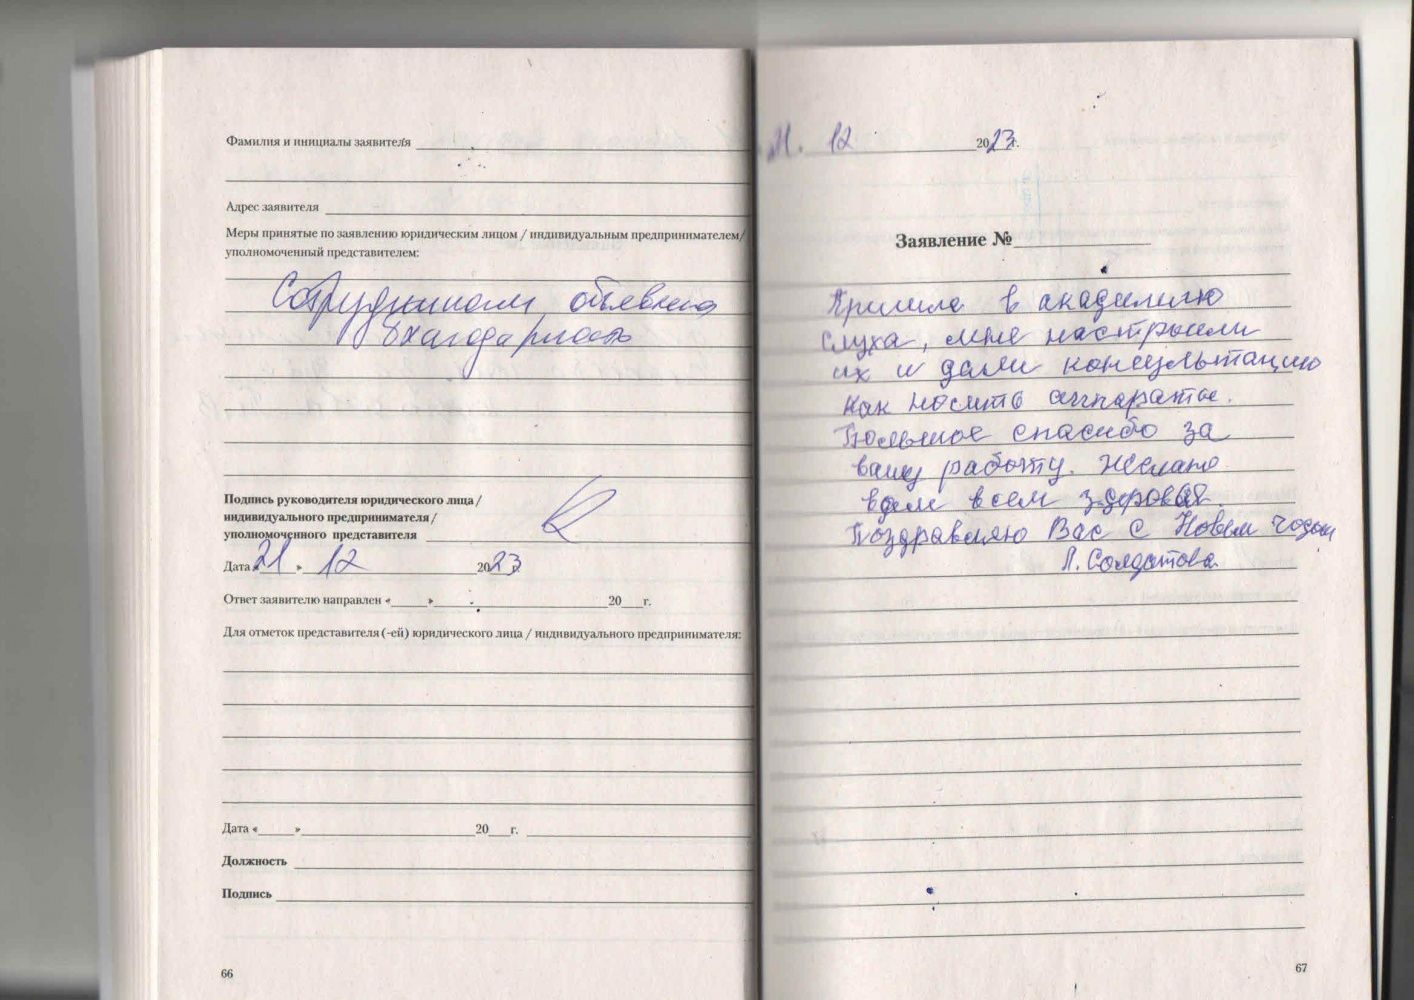 Фамилия и инициалы заявителя
Адрес заявителя
Меры принятые по заявлению юридическим лицом / индивидуальным предпринимателем/
уполномоченный представителем:
Сотрудникам объявлена
благодарность
Подпись руководителя юридического лица /
индивидуального предпринимателя /
уполномоченного представителя
Дата « 21 » 12 2023 г.
Ответ заявителю направлен « » 20 г.
Для отметок представителя (-ей) юридического лица / индивидуального предпринимателя:
Дата « » 20 г.
Должность
Подпись
66
12 2023 г.
Заявление №
Пришла в академию
слуха, мне настроили
их и дали консультацию
как носить аппараты.
Большое спасибо за
вашу работу. Желаю
вам всем здоровья
Поздравляю Вас с Новым годом
Л. Солдатова
67